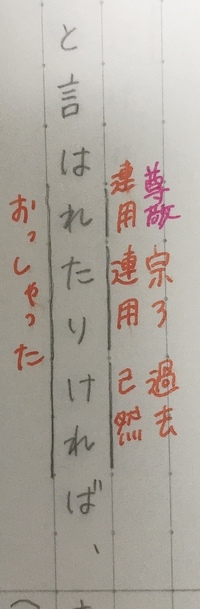 尊敬 完了 過去
連用 連用 已然
と言はれたりければ、
おっしゃった